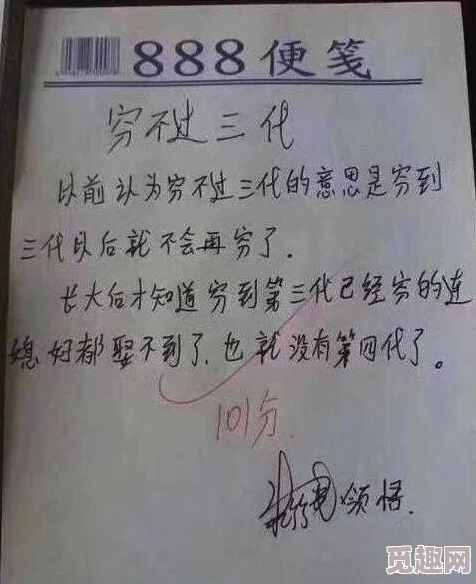 888便笺
穷不过三代
以前认为穷不过三代的意思是穷到
三代以后就不会再穷了.
长大后才知道穷到第三代已经穷的连
媳妇都娶不到了,也就没有第四代了。
101分.
领悟.
觅趣网